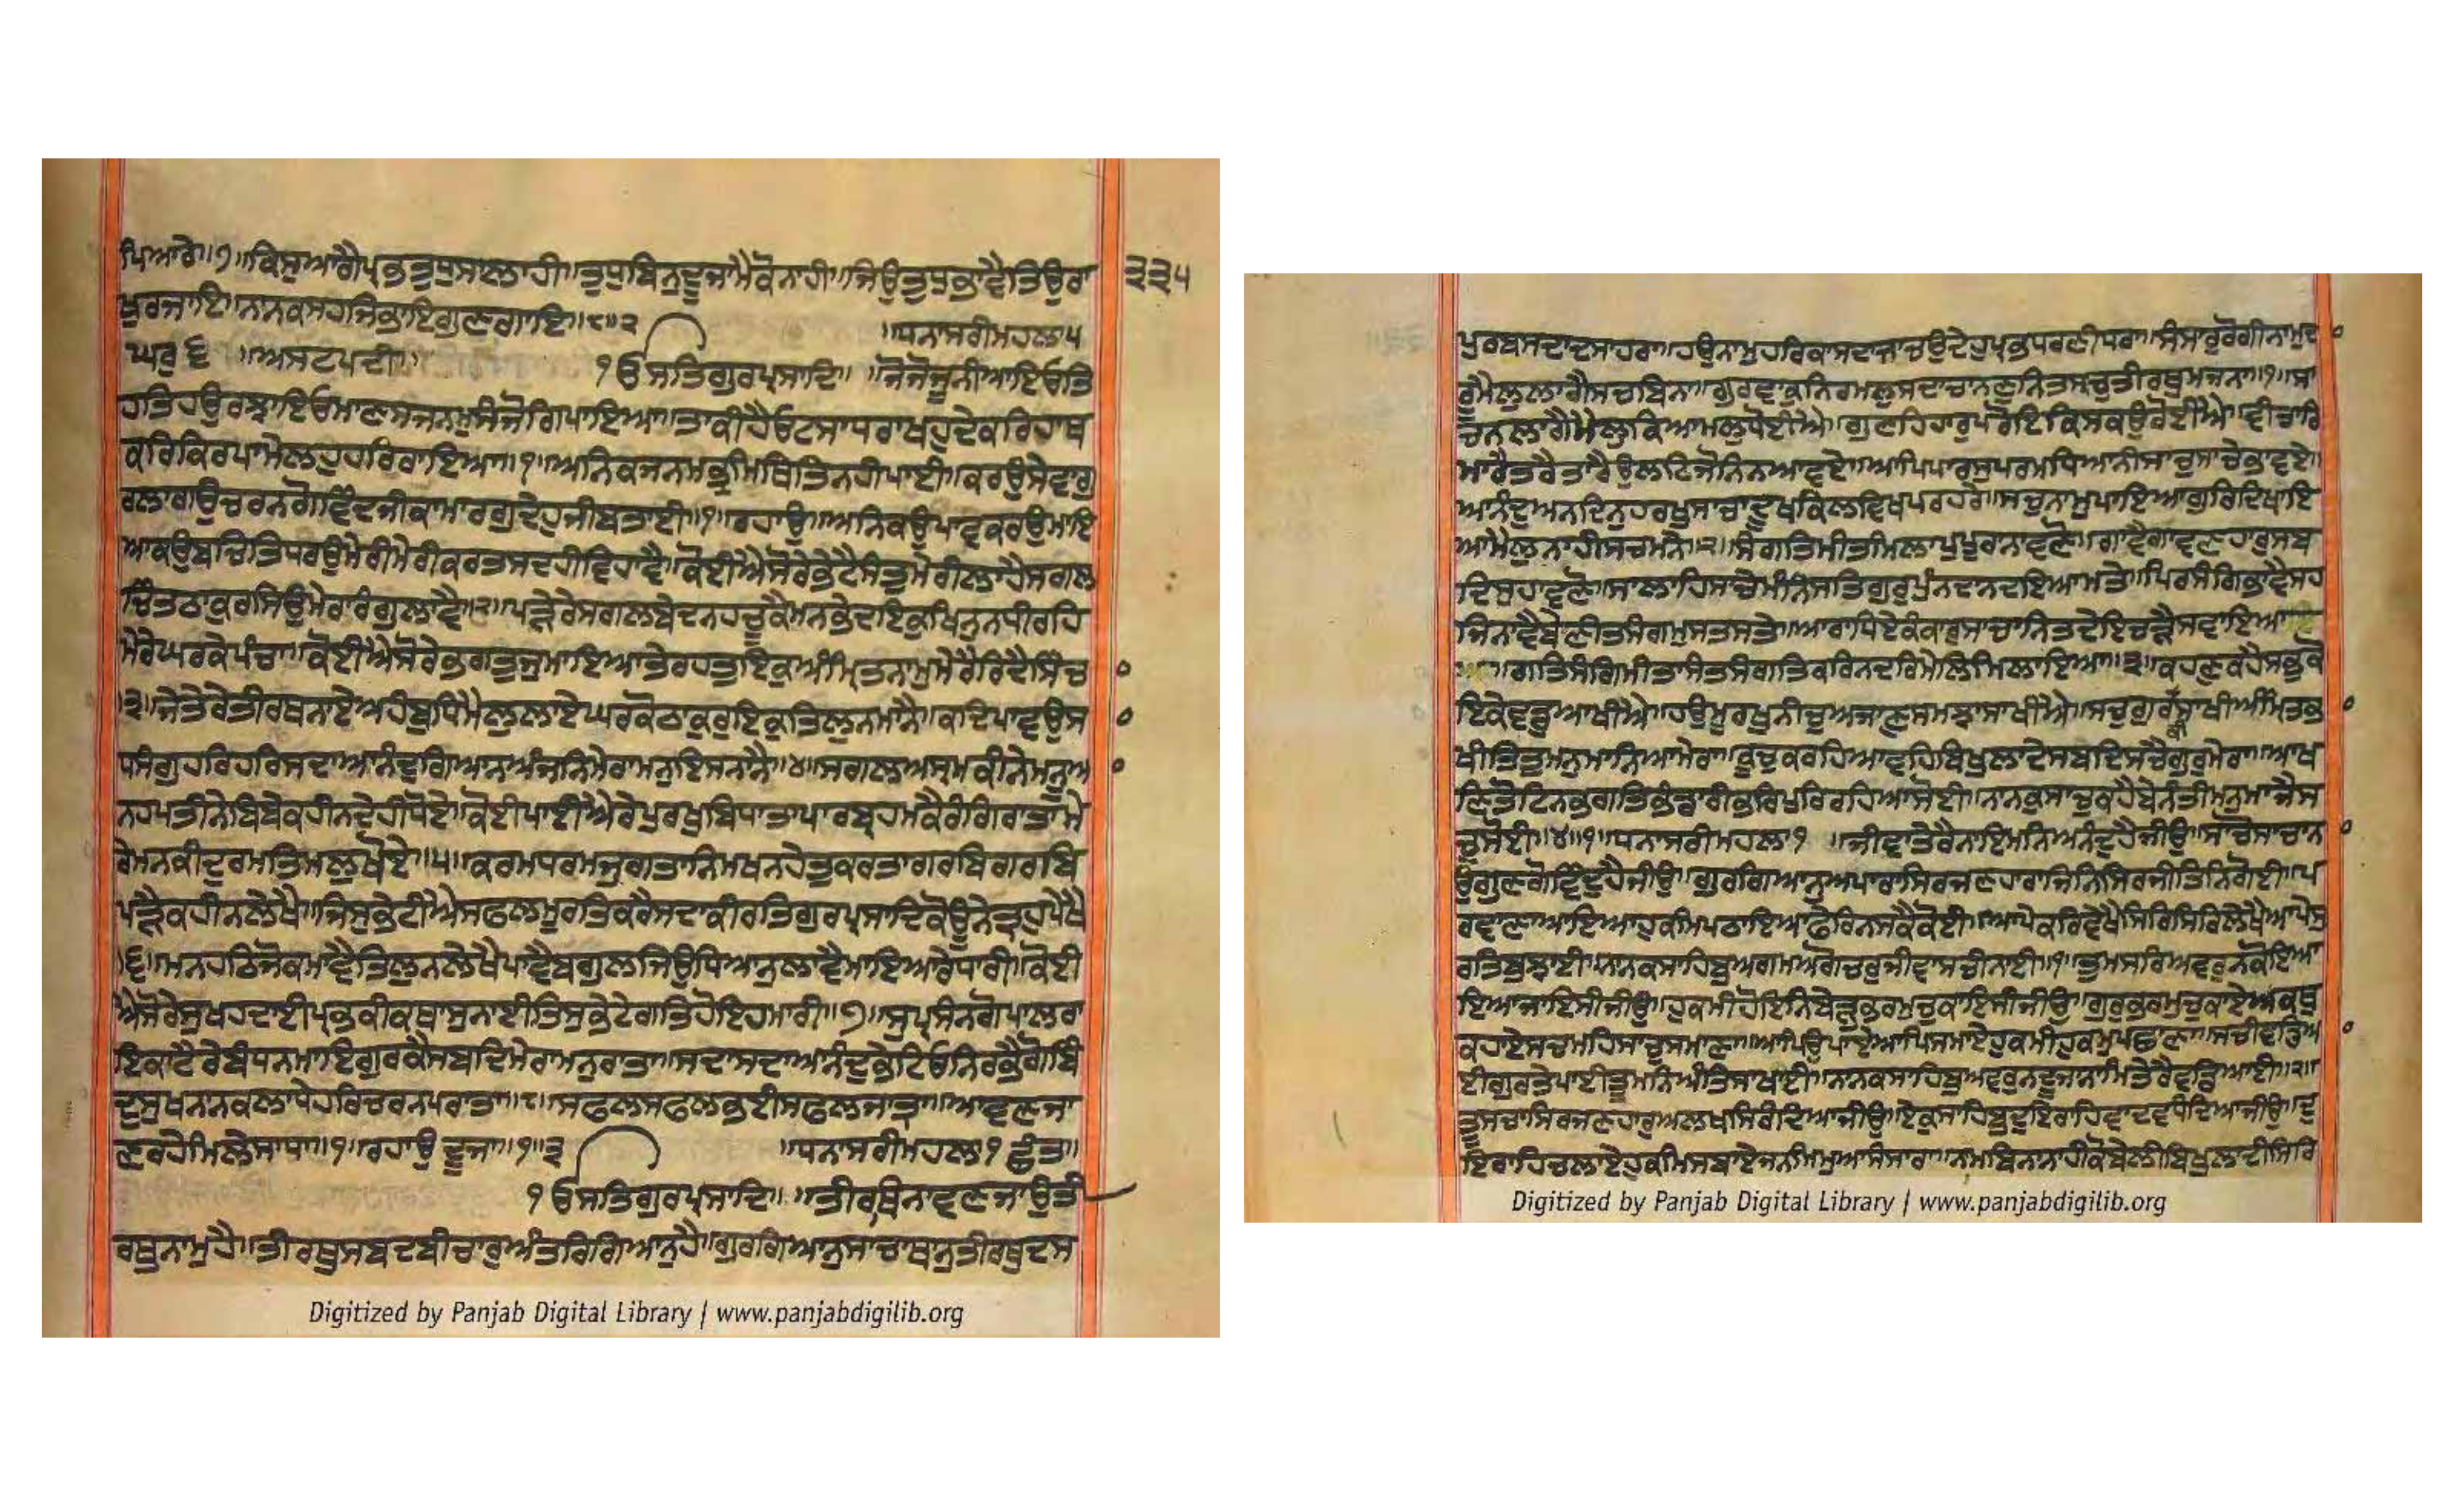 ਪਿਆਰੇ॥੭॥ਕਿਸੁਆਗੈਪ੍ਰਭਤੁਧੁਸਾਲਾਹੀ॥ਤੁਧੁਬਿਨੁਦੂਜਾਮੈਕੋਨਾਹੀ॥ਜਿਉਤੁਧੁਭਾਵੈਤਿਉਰਾ ੩੩੫
ਖੁਰਜਾਇ॥ਨਾਨਕਸਹਜਿਭਾਇਗੁਣਗਾਇ॥੮॥੨ ॥ਧਨਾਸਰੀਮਹਲਾ੫
ਘਰੁ੬ ॥ਅਸਟਪਦੀ॥ ੧ਓਸਤਿਗੁਰਪ੍ਰਸਾਦਿ॥ ॥ਜੋਜੋਜੂਨੀਆਇਓਤਿ
ਹਤਿਹਉਰਝਾਇਓਮਾਣਸਜਨਮੁਸੰਜੋਗਿਪਾਇਆ॥ਤਾਕੀਹੈਓਟਸਾਧਰਾਖਹੁਦੇਕਰਿਹਾਥ
ਕਰਿਕਿਰਪਾਮੇਲਹੁਹਰਿਰਾਇਆ॥੧॥ਅਨਿਕਜਨਮਭ੍ਰਮਿਥਿਤਿਨਹੀਪਾਈ॥ਕਰਉਸੇਵਾਗੁ
ਰਲਾਗਉਚਰਨਗੋਵਿੰਦਜੀਕਾਮਾਰਗੁਦੇਹੁਜੀਬਤਾਈ॥੧॥ਰਹਾਉ॥ਅਨਿਕਉਪਾਵਕਰਉਮਾਇ
ਆਕਉਬਚਿਤਿਧਰਉਮੇਰੀਮੇਰੀਕਰਤਸਦਹੀਵਿਹਾਵੈ॥ਕੋਈਐਸੋਰੇਭੇਟੈਸੰਤੁਮੇਰੀਲਾਹੈਸਗਲ
ਚਿੰਤਠਾਕੁਰਸਿਉਮੇਰਾਰੰਗੁਲਾਵੈ॥੨॥ਪੜੇਰੇਸਗਲਬੇਦਨਹਚੂਕੈਮਨਭੇਦਇਕੁਖਿਨੁਨਧੀਰਹਿ
ਮੇਰੇਘਰਕੇਪੰਚਾ॥ਕੋਈਐਸੋਰੇਭਗਤੁਜੁਮਾਇਆਤੇਰਹਤੁਇਕੁਅੰਮ੍ਰਿਤਨਾਮੁਮੇਰੈਰਿਦੈਸਿੰਚਾ
॥੩॥ਜੇਤੇਰੇਤੀਰਥਨਾਏਅਹੰਬੁਧਿਮੈਲੁਲਾਏਘਰਕੋਠਾਕੁਰੁਇਕੁਤਿਲੁਨਮਾਨੈ॥ਕਦਿਪਾਵਉਸਾ
ਧਸੰਗੁਹਰਿਹਰਿਸਦਾਆਨੰਦੁਗਿਆਨਅੰਜਨਿਮੇਰਾਮਨੁਇਸਨਾਨੈ॥੪॥ਸਗਲਅਸ੍ਰਮਕੀਨੇਮਨੂਆ
ਨਹਪਤੀਨੇਬਿਬੇਕਹੀਨਦੇਹੀਧੋਏ॥ਕੋਈਪਾਈਐਰੇਪੁਰਖੁਬਿਧਾਤਾਪਾਰਬ੍ਰਹਮਕੈਰੰਗਿਰਾਤਾਮੇ
ਰੇਮਨਕੀਦੁਰਮਤਿਮਲੁਖੋਏ॥੫॥ਕਰਮਧਰਮਜੁਗਤਾਨਿਮਖਨਹੇਤੁਕਰਤਾਗਰਬਿਗਰਬਿ
ਪੜੈਕਹੀਨਲੇਖੈ॥ਜਿਸੁਭੇਟੀਐਸਫਲਮੂਰਤਿਕਰੈਸਦਾਕੀਰਤਿਗੁਰਪ੍ਰਸਾਦਿਕੋਊਨੇਤ੍ਰਹੁਪੇਖੈ
॥੬॥ਮਨਹਠਿਜੋਕਮਾਵੈਤਿਲੁਨਲੇਖੈਪਾਵੈਬਗੁਲਜਿਉਧਿਆਨੁਲਾਵੈਮਾਇਆਰੇਧਾਰੀ॥ਕੋਈ
ਐਸੋਰੇਸੁਖਹਦਾਈਪ੍ਰਭਕੀਕਥਾਸੁਨਾਈਤਿਸੁਭੇਟੇਗਤਿਹੋਇਹਮਾਰੀ॥੭॥ਸੁਪ੍ਰਸੰਨਗੋਪਾਲਰਾ
ਇਕਾਟੈਰੇਬੰਧਨਮਾਇਗੁਰਕੈਸਬਦਿਮੇਰਾਮਨੁਰਾਤਾ॥ਸਦਾਸਦਾਆਨੰਦੁਭੇਟਿਓਨਿਰਭੈਗੋਬਿੰ
ਦੁਸੁਖਨਾਨਕਲਾਧੇਹਰਿਚਰਨਪਰਾਤਾ॥੮॥ਸਫਲਸਫਲਭਈਸਫਲਜਾਤ੍ਰਾ॥ਆਵਣਜਾ
ਣਰਹੇਮਿਲੇਸਾਧਾ॥੧॥ਰਹਾਉਦੂਜਾ॥੧॥੩ ॥ਧਨਾਸਰੀਮਹਲਾ੧ਛੰਤ॥
੧ਓਸਤਿਗੁਰਪ੍ਰਸਾਦਿ॥ ॥ਤੀਰਥਿਨਾਵਣਜਾਉਤੀ
ਰਥੁਨਾਮੁਹੈ॥ਤੀਰਥੁਸਬਦਬੀਚਾਰੁਅੰਤਰਿਗਿਆਨੁਹੈ॥ਗੁਰਗਿਆਨੁਸਾਚਾਥਾਨੁਤੀਰਥੁਦਸ
Digitized by Panjab Digital Library | www.panjabdigilib.org
ਪੁਰਬਸਦਾਦਸਾਹਰਾ॥ਹਉਨਾਮੁਹਰਿਕਾਸਦਾਜਾਚਉਦੇਹੁਪ੍ਰਭਧਰਣੀਧਰਾ॥ਸੰਸਾਰੁਰੋਗੀਨਾਮੁਦਾ
ਰੂਮੈਲੁਲਾਗੈਸਚਬਿਨਾ॥ਗੁਰਵਾਕੁਨਿਰਮਲੁਸਦਾਚਾਨਣੁਨਿਤਸਾਚੁਤੀਰਥੁਮਜਨਾ॥੧॥ਸਾ
ਚਨਲਾਗੈਮੈਲੁਕਿਆਮਲੁਧੋਈਐ॥ਗੁਣਹਿਹਾਰੁਪਰੋਇਕਿਸਕਉਰੋਈਐ॥ਵੀਚਾਰਿ
ਮਾਰੈਤਰੈਤਾਰੈਉਲਟਿਜੋਨਿਨਆਵਏ॥ਆਪਿਪਾਰਸੁਪਰਮਧਿਆਨੀਸਾਚੁਸਾਚੇਭਾਵਏ॥
ਆਨੰਦੁਅਨਦਿਨੁਹਰਖੁਸਾਚਾਦੂਖਕਿਲਵਿਖਪਰਹਰੇ॥ਸਚੁਨਾਮੁਪਾਇਆਗੁਰਿਦਿਖਾਇ
ਆਮੈਲੁਨਾਹੀਸਚਮਨੇ॥੨॥ਸੰਗਤਿਮੀਤਮਿਲਾਪੁਪੂਰਾਨਾਵਣੋ॥ਗਾਵੈਗਾਵਣਹਾਰੁਸਬ
ਦਿਸੁਹਾਵਣੋ॥ਸਾਲਾਹਿਸਾਚੇਮੰਨਿਸਤਿਗੁਰੁਪੁੰਨਦਾਨਦਇਆਮਤੇ॥ਪਿਰਸੰਗਿਭਾਵੈਸਹ
ਜਿਨਾਵੈਬੇਣੀਤਸੰਗਮੁਸਤਸਤੇ॥ਆਰਾਧਿਏਕੰਕਾਰੁਸਾਚਾਨਿਤਦੇਇਚੜੈਸਵਾਇਆ
॥ਗਤਿਸੰਗਿਮੀਤਾਸੰਤਸੰਗਤਿਕਰਿਨਦਰਿਮੇਲਿਮਿਲਾਇਆ॥੩॥ਕਹਣੁਕਹੈਸਭੁਕੋ
ਇਕੇਵਡੁਆਖੀਐ॥ਹਉਮੂਰਖੁਨੀਚੁਅਜਾਣੁਸਮਝਾਸਾਖੀਐ॥ਸਚੁਗੁਰਕੀਸਾਖੀਅੰਮ੍ਰਿਤਭਾ
ਖੀਤਿਤੁਮਨੁਮਾਨਿਆਮੇਰਾ॥ਕੂਚੁਕਰਹਿਆਵਹਿਬਿਖੁਲਾਦੇਸਬਦਿਸਚੈਗੁਰੁਮੇਰਾ॥ਆਖ
ਣਿਤੋਟਿਨਭਗਤਿਭੰਡਾਰੀਭਰਿਪੁਰਿਰਹਿਆਸੋਈ॥ਨਾਨਕਸਾਚੁਕਹੈਬੇਨੰਤੀਮਨੁਮਾਂਜੈਸ
ਚੁਸੋਈ॥੪॥੧॥ਧਨਾਸਰੀਮਹਲਾ੧ ॥ਜੀਵਾਤੇਰੈਨਾਇਮਨਿਆਨੰਦੁਹੈਜੀਉ॥ਸਾਚੋਸਾਚਾਨਾ
ਉਗੁਣਗੋਵਿੰਦੁਹੈਜੀਉ॥ਗੁਰਗਿਆਨੁਅਪਾਰਾਸਿਰਜਣਹਾਰਾਜਿਨਿਸਿਰਜੀਤਿਨਿਗੋਈ॥ਪ
ਰਵਾਣਾਆਇਆਹੁਕਮਿਪਠਾਇਆਫੇਰਿਨਸਕੈਕੋਈ॥ਆਪੇਕਰਿਵੇਖੈਸਿਰਿਸਿਰਿਲੇਖੈਆਪੇਸੁ
ਰਤਿਬੁਝਾਈ॥ਨਾਨਕਸਾਹਿਬੁਅਗਮਅਗੋਚਰੁਜੀਵਾਸਚੀਨਾਈ॥੧॥ਤੁਮਸਰਿਅਵਰੁਨਕੋਇਆ
ਇਆਜਾਇਸੀਜੀਉ॥ਹੁਕਮੀਹੋਇਨਿਬੇੜੁਭਰਮੁਚੁਕਾਇਸੀਜੀਉ॥ਗੁਰੁਭਰਮੁਚੁਕਾਏਅਕਥੁ
ਕਹਾਏਸਚਮਹਿਸਾਚੁਸਮਾਣਾ॥ਆਪਿਉਪਾਏਆਪਿਸਮਾਏਹੁਕਮੀਹੁਕਮੁਪਛਾਣਾ॥ਸਚੀਵਡਿਆ
ਈਗੁਰਤੇਪਾਈਤੂਮਨਿਅੰਤਿਸਖਾਈ॥ਨਾਨਕਸਾਹਿਬੁਅਵਰੁਨਦੂਜਾਨਾਮਿਤੇਰੈਵਡਿਆਈ॥੨॥
ਤੂਸਚਾਸਿਰਜਣਹਾਰੁਅਲਖਸਿਰੰਦਿਆਜੀਉ॥ਏਕੁਸਾਹਿਬੁਦੁਇਰਾਹਵਾਦਵਧੰਦਿਆਜੀਉ॥ਦੁ
ਇਰਾਹਚਲਾਏਹੁਕਮਿਸਬਾਏਜਨਮਿਮੁਆਸੰਸਾਰਾ॥ਨਾਮਬਿਨਾਨਾਹੀਕੋਬੇਲੀਬਿਖੁਲਾਦੀਸਿਰਿ
Digitized by Panjab Digital Library | www.panjabdigilib.org